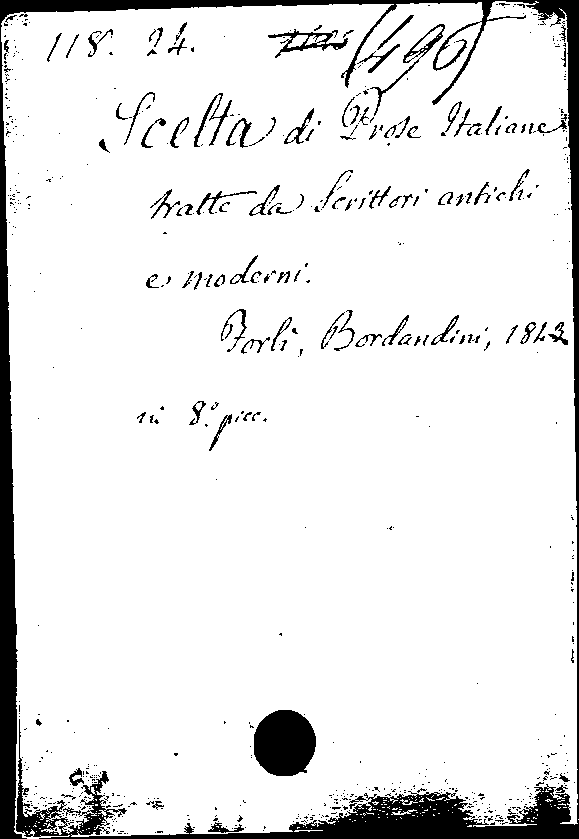 118. 24. (496)
Scelta di Prose Italiane
tratte da Scrittori antichi
e moderni.
Forlì, Bordandini, 1843
in 8.° picc.